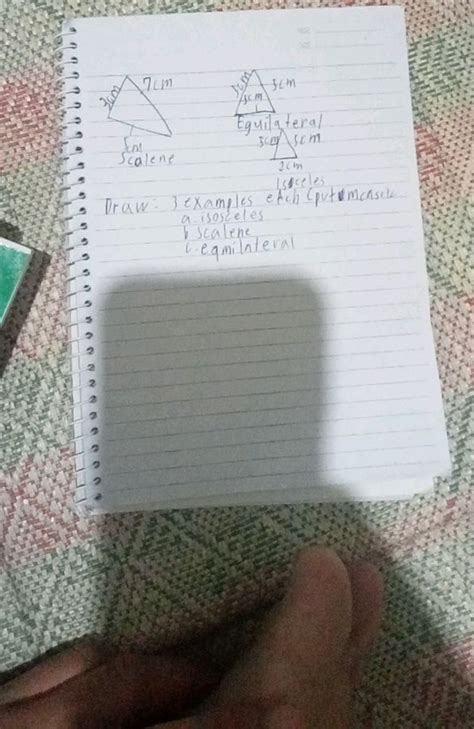 7cm
3cm
5cm
Scalene
3cm
3cm
3cm
Equilateral
3cm 3cm
2cm
isosceles
Draw: 3 examples each (put
a. isosceles
b. scalene
c. equilateral